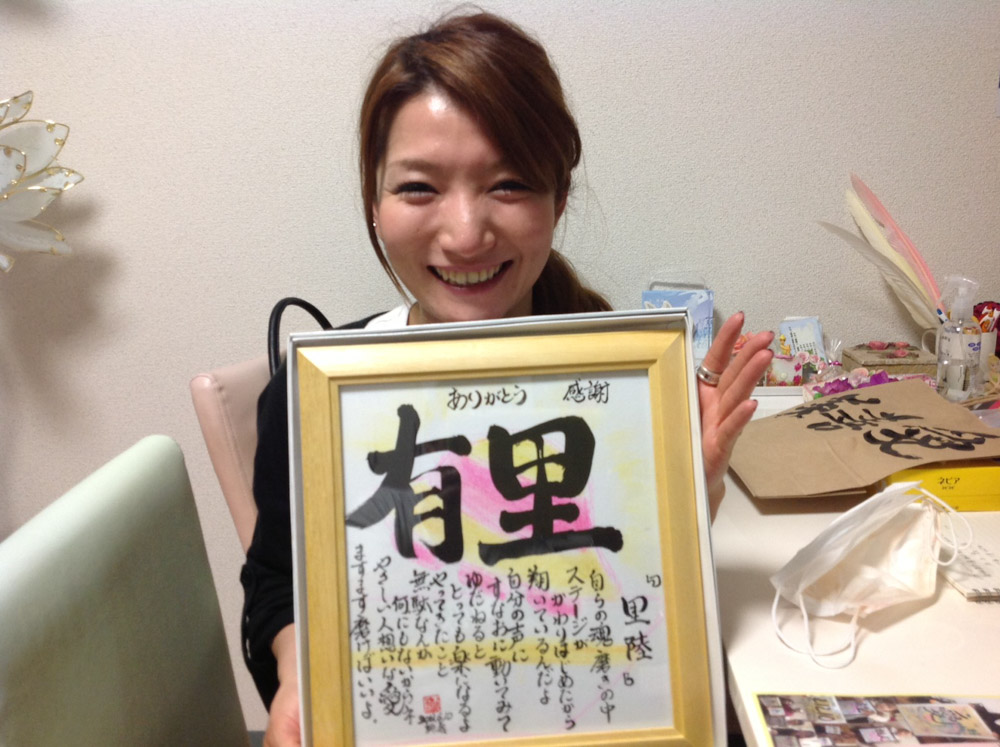 ありがとう　感謝
有里
里陸
自らの魂磨きの中
ステージが
かわりはじめたから
翔いているんだよ
自分の声に
すなおに動いてみて
ゆだねると
とっても楽になるよ
やってきたこと
無駄なんか
何にもないからネ
やさしい人想いな愛
ますます磨けばいいよ。
ネピア